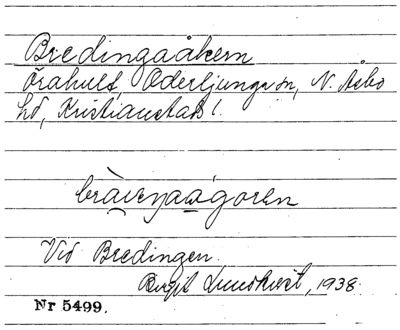 Bredingaåkern
Örahult, Oderljunga sn, N. Åsbo
hd, Kristianstads l.
Vid Bredingen.
Birgit Lundkvist, 1938.
Nr 5499.